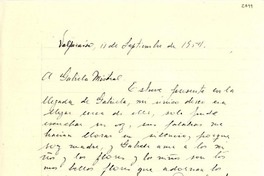 Valparaíso, 11 de Septiembre de 1954.
A Gabriela Mistral
Estuve presente en la
llegada de Gabriela, mi único deseo era
llegar cerca de ella, solo pude
escuchar su voz, sus palabras me
hacían llorar en silencio, porque
soy madre, y Gabriela ama a los ni
ños y las flores y los niños son los
más bellos flores que adornan la